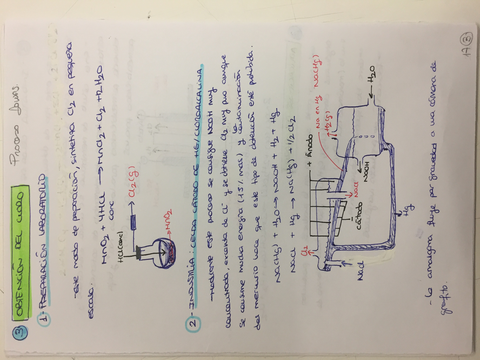 3 OBTENCIÓN DEL CLORO
1- PREPARACIÓN LABORATORIO
-este modo de preparación, sintetiza Cl2 en pequeña
escala.
MnO2 + 4HCl → MnCl2 + Cl2 + 2H2O
conc
HCl(conc)
Cl2(g)
MnO2
2- INDUSTRIA CELDA CÁTODO DE HG/CLOROALCALINA.
-Mediante este proceso se consigue NaOH muy
concentrado, exento de Cl- y se obtiene Cl2 muy puro aunque
se consume mucha energía (15% más) y la contaminación
del mercurio hace que este tipo de obtención esté prohibida.
Na(Hg) + H2O → NaOH + H2 + Hg
NaCl + Hg → Na(Hg) + 1/2Cl2
+ ánodo
Na en Hg Na(Hg)
H2(g)
Cl2
NaCl
- cátodo
NaOH
H2O
NaCl
Hg
- la amalgama fluye por gravedad a una cámara de
grafito